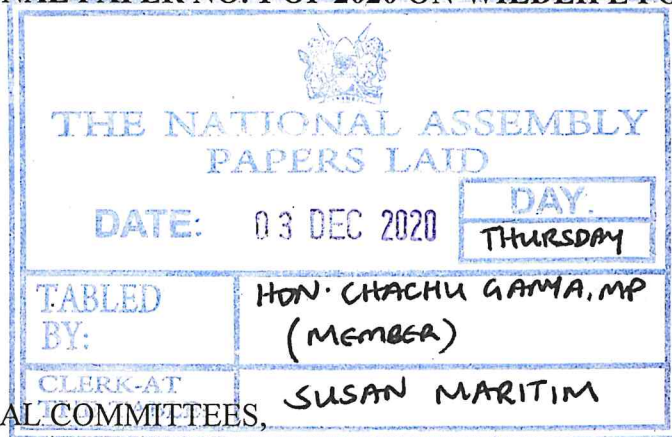 NAL PAPER NO. 1 OF 2020 ON WILDLIFE PO
THE NATIONAL ASSEMBLY
PAPERS LAID
DATE: 03 DEC 2020
DAY:
THURSDAY
TABLED BY:
HON. CHACHU GANYA, MP
(MEMBER)
CLERK-AT
SUSAN MARITIM
AL COMMITTEES,